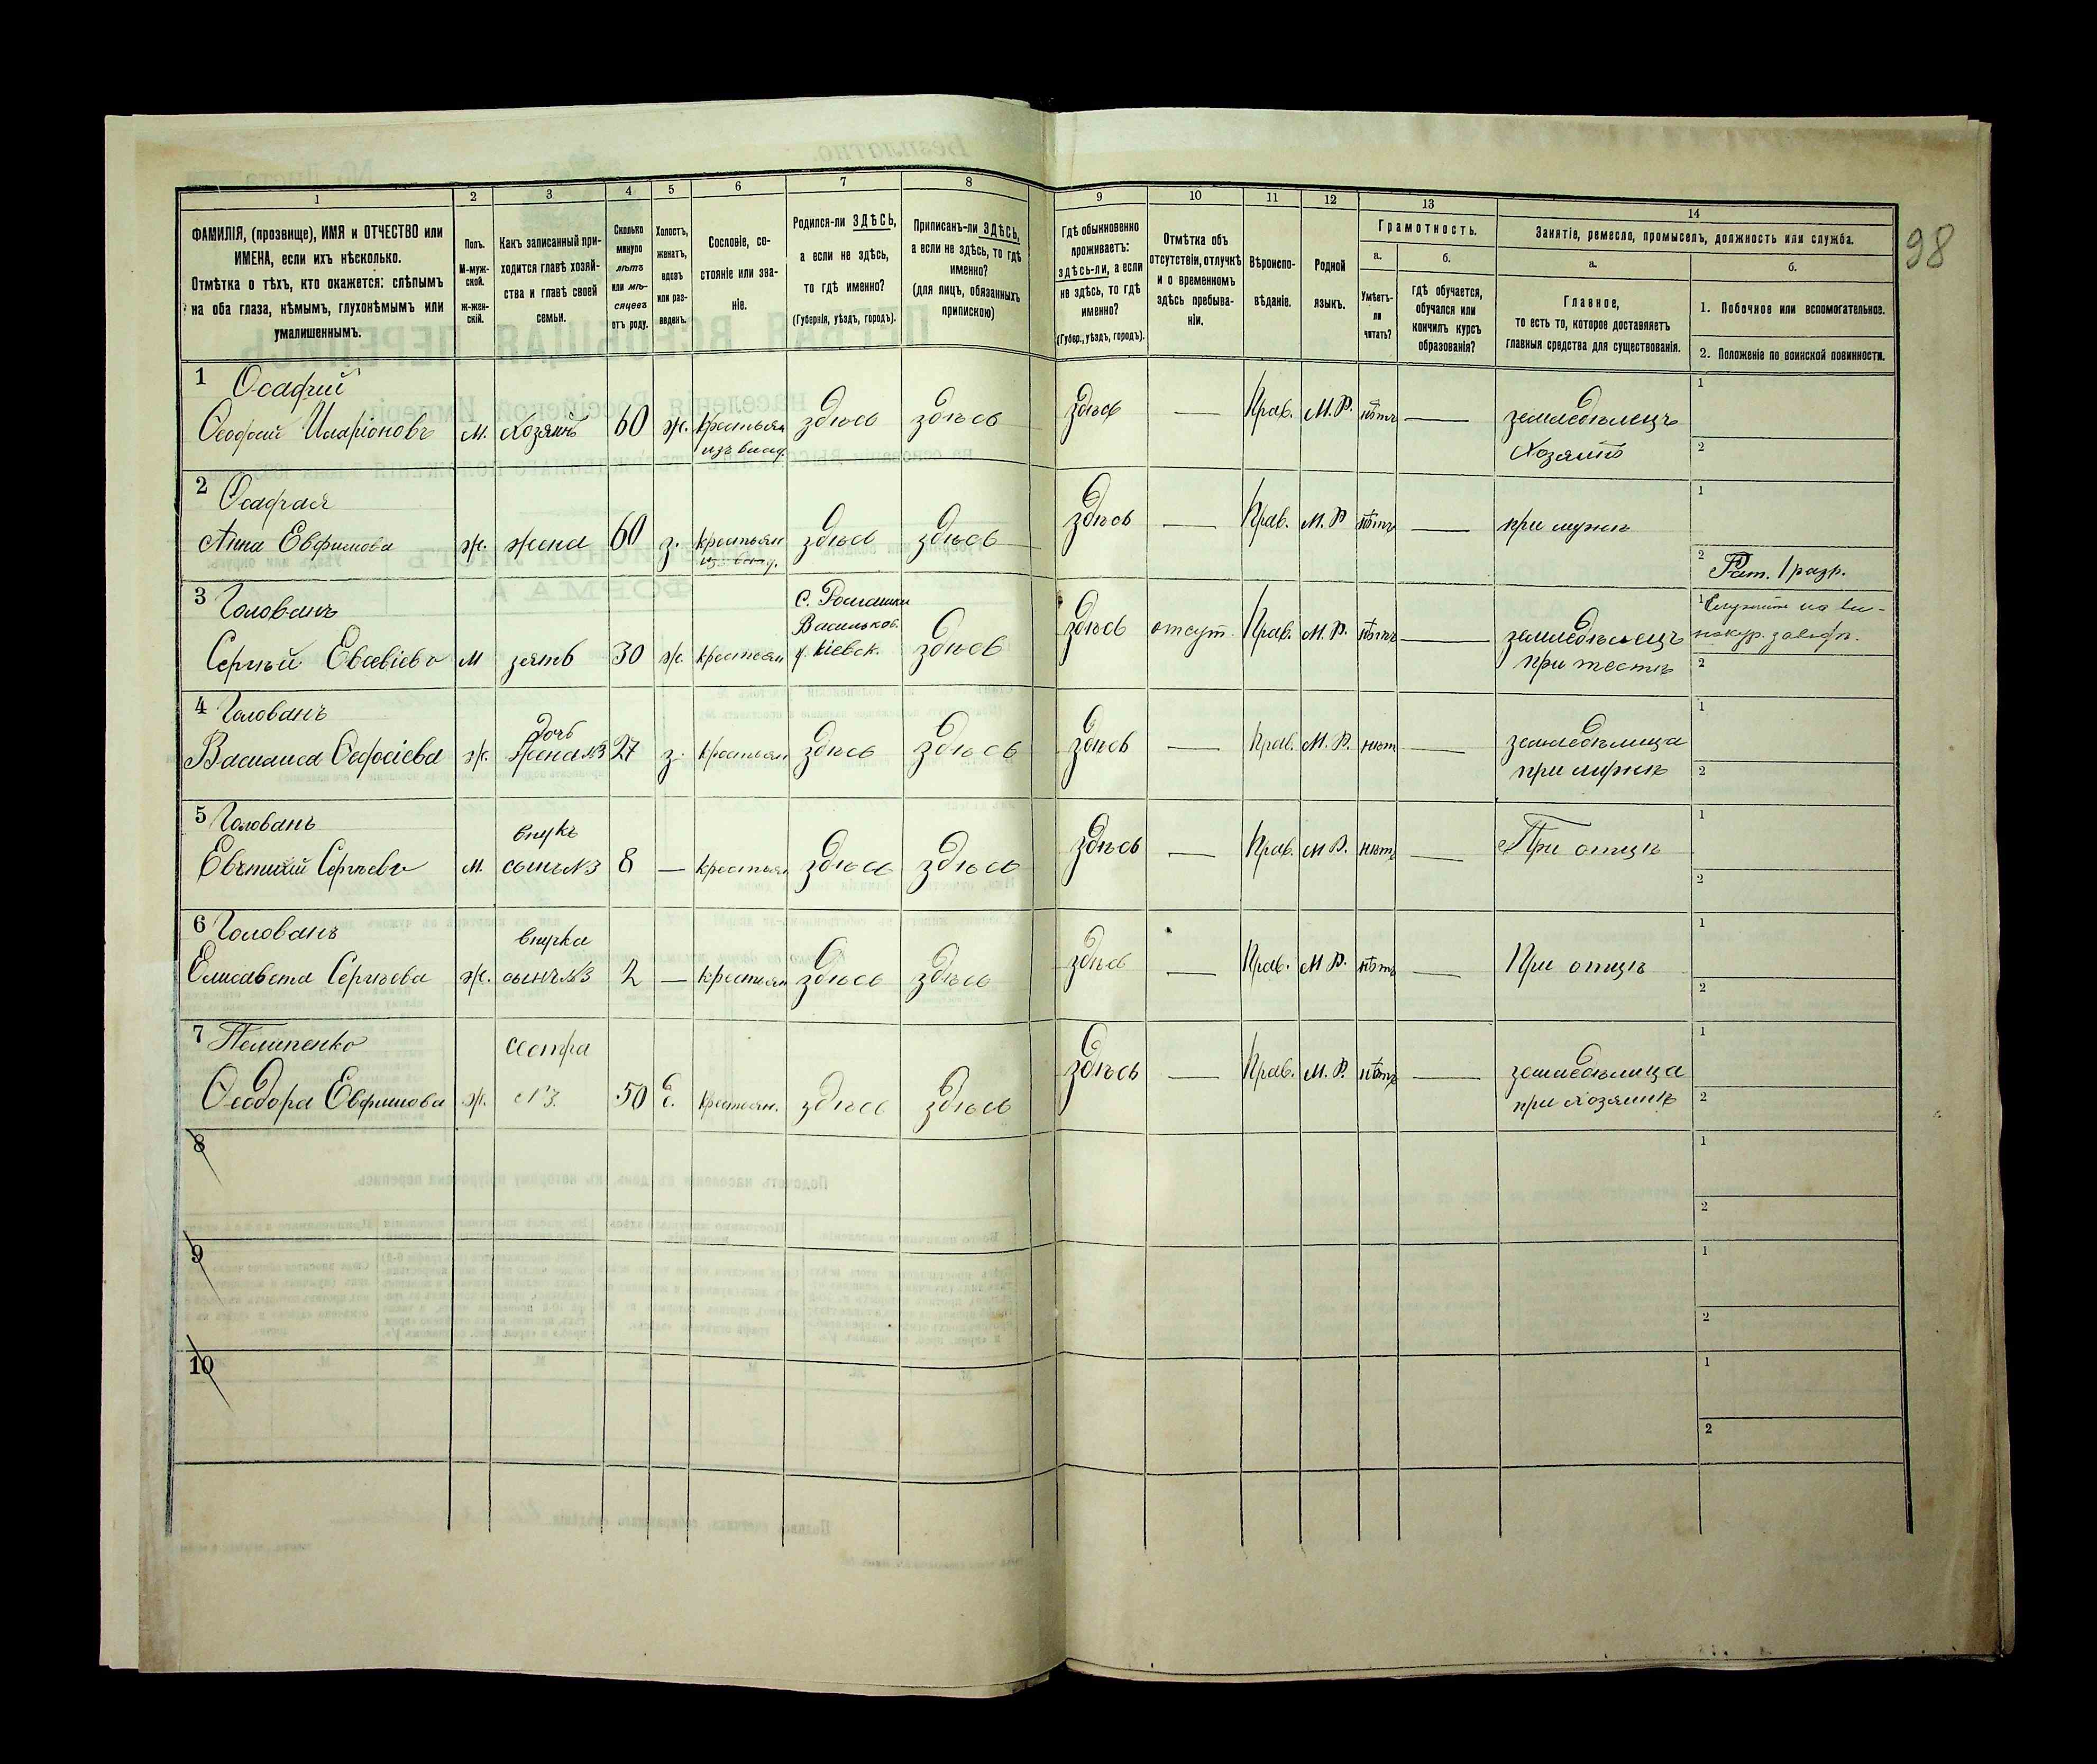 98
1 2 3 4 5 6 7 8 9 10 11 12 13 14
ФАМИЛІЯ, (прозвище), ИМЯ и ОТЧЕСТВО или
ИМЕНА, если ихъ нѣсколько.
Отмѣтка о тѣхъ, кто окажется: слѣпымъ
на оба глаза, нѣмымъ, глухонѣмымъ или
умалишеннымъ.
Полъ.
М-муж-
ской.
Ж-жен-
скій.
Какъ записанный при-
ходится главѣ хозяй-
ства и главѣ своей
семьи.
Сколько
минуло
лѣтъ
или мѣ-
сяцевъ
отъ роду.
Холостъ,
женатъ,
вдовъ
или раз-
веденъ.
Сословіе, со-
стояніе или зва-
ніе.
Родился-ли ЗДѢСЬ,
а если не здѣсь,
то гдѣ именно?
(Губернія, уѣздъ, городъ).
Приписанъ-ли ЗДѢСЬ,
а если не здѣсь, то гдѣ
именно?
(для лицъ, обязанныхъ
припискою)
Гдѣ обыкновенно
проживаетъ:
здѣсь-ли, а если
не здѣсь, то гдѣ
именно?
(Губер., уѣздъ, городъ).
Отмѣтка объ
отсутствіи, отлучкѣ
и о временномъ
здѣсь пребыва-
ніи.
Вѣроиспо-
вѣданіе.
Родной
языкъ.
Грамотность.
а.
Умѣетъ-
ли
читать?
б.
гдѣ обучается,
обучался или
кончилъ курсъ
образованія?
Занятіе, ремесло, промыселъ, должность или служба.
а.
Главное,
то есть то, которое доставляетъ
главныя средства для существованія.
б.
1. Побочное или вспомогательное.
2. Положеніе по воинской повинности.
1
Иларіоновъ м. Хозяинъ 60 ж. Крестьян здѣсь здѣсь здѣсь — Прав. М.Р. нѣтъ — земледѣлецъ
Хозяинъ
1
2
2
Анна Евфимова ж. жена 60 з. крестьян здѣсь здѣсь здѣсь — Прав. М.Р. нѣтъ — при мужѣ
1
2 Рат. 1 разр.
3 Голованъ
Сергѣй Евсевіевъ м зять 30 ж. крестьян
с. Ромашки
Васильков.
у. Кіевск.
здѣсь здѣсь отсут. Прав. М.Р. нѣтъ — земледѣлецъ
при тестѣ
1 Служитъ на ви-
нокур. заводѣ.
2
4 Голованъ
дочь
Васи жена №3 27 з. Крестьян здѣсь здѣсь здѣсь — Прав. М.Р. нѣтъ — земледѣлица
при мужѣ
1
2
5 Голованъ
внукъ
Евтихій Сергѣевъ м. сынъ №3 8 — крестьян здѣсь здѣсь здѣсь — Прав. М.Р. нѣтъ — При отцѣ
1
2
6 Голованъ
внучка
Елисавета Сергѣева ж. сынъ №3 2 — крестьян здѣсь здѣсь здѣсь — Прав. М.Р. нѣтъ — При отцѣ
1
2
7 Пелипенко
сестра
Ѳеодора Евфимова ж. №3. 50 крестьян. здѣсь здѣсь здѣсь — Прав. М.Р. нѣтъ — земледѣлица
при хозяинѣ
1
2
8
1
2
9
1
2
10
1
2